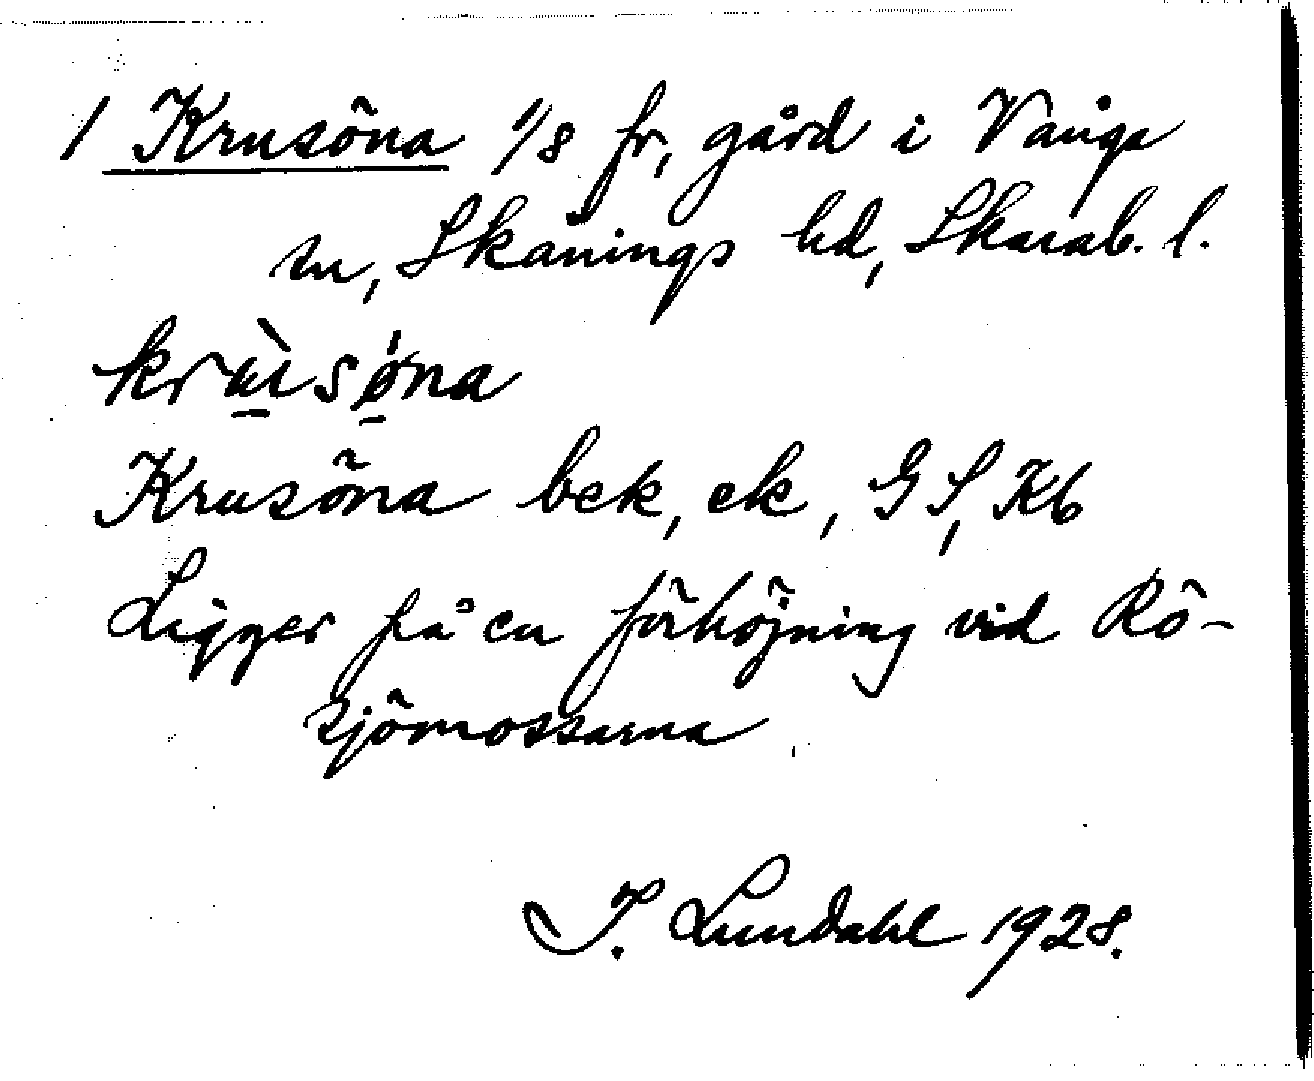 1 Krusöna 1/8 fr, gård i Vångs
sn, Skånings hd, Skarab. l.
krùsǿna
Krusöna bek, ek, GS, Kb
Ligger på en förhöjning vid Rö-
sjömossarna
I. Lundahl 1928.